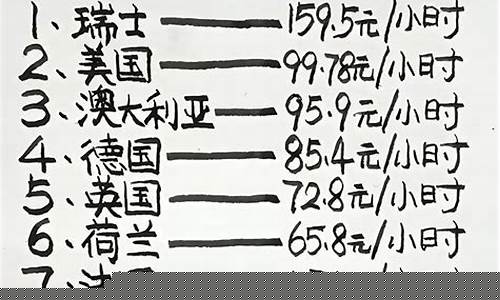 1、瑞士——159.5元/小时
2、美国——99.78元/小时
3、澳大利亚——95.9元/小时
4、德国——85.4元/小时
5、英国——72.8元/小时
6、荷兰——65.8元/小时
7、